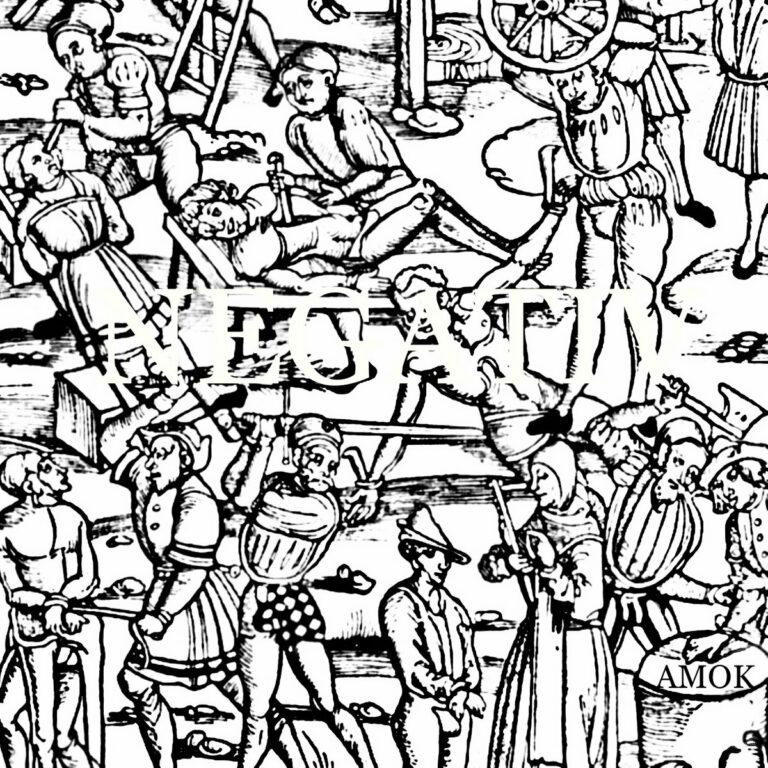 NEGATIV
AMOK